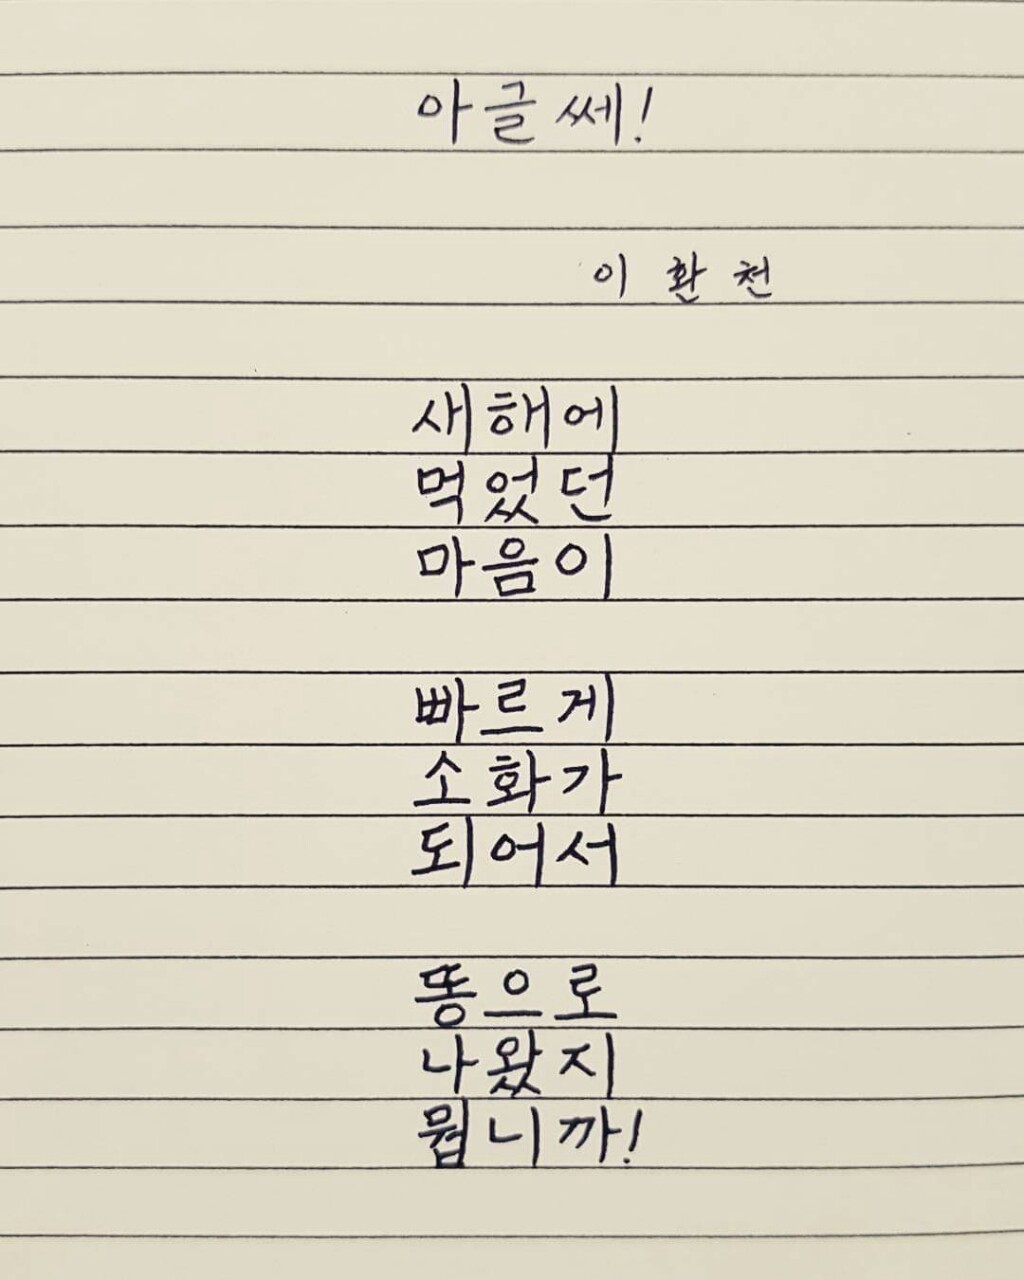 아글쎄!
이환천
새해에
먹었던
마음이
빠르게
소화가
되어서
똥으로
나왔지
뭡니까!